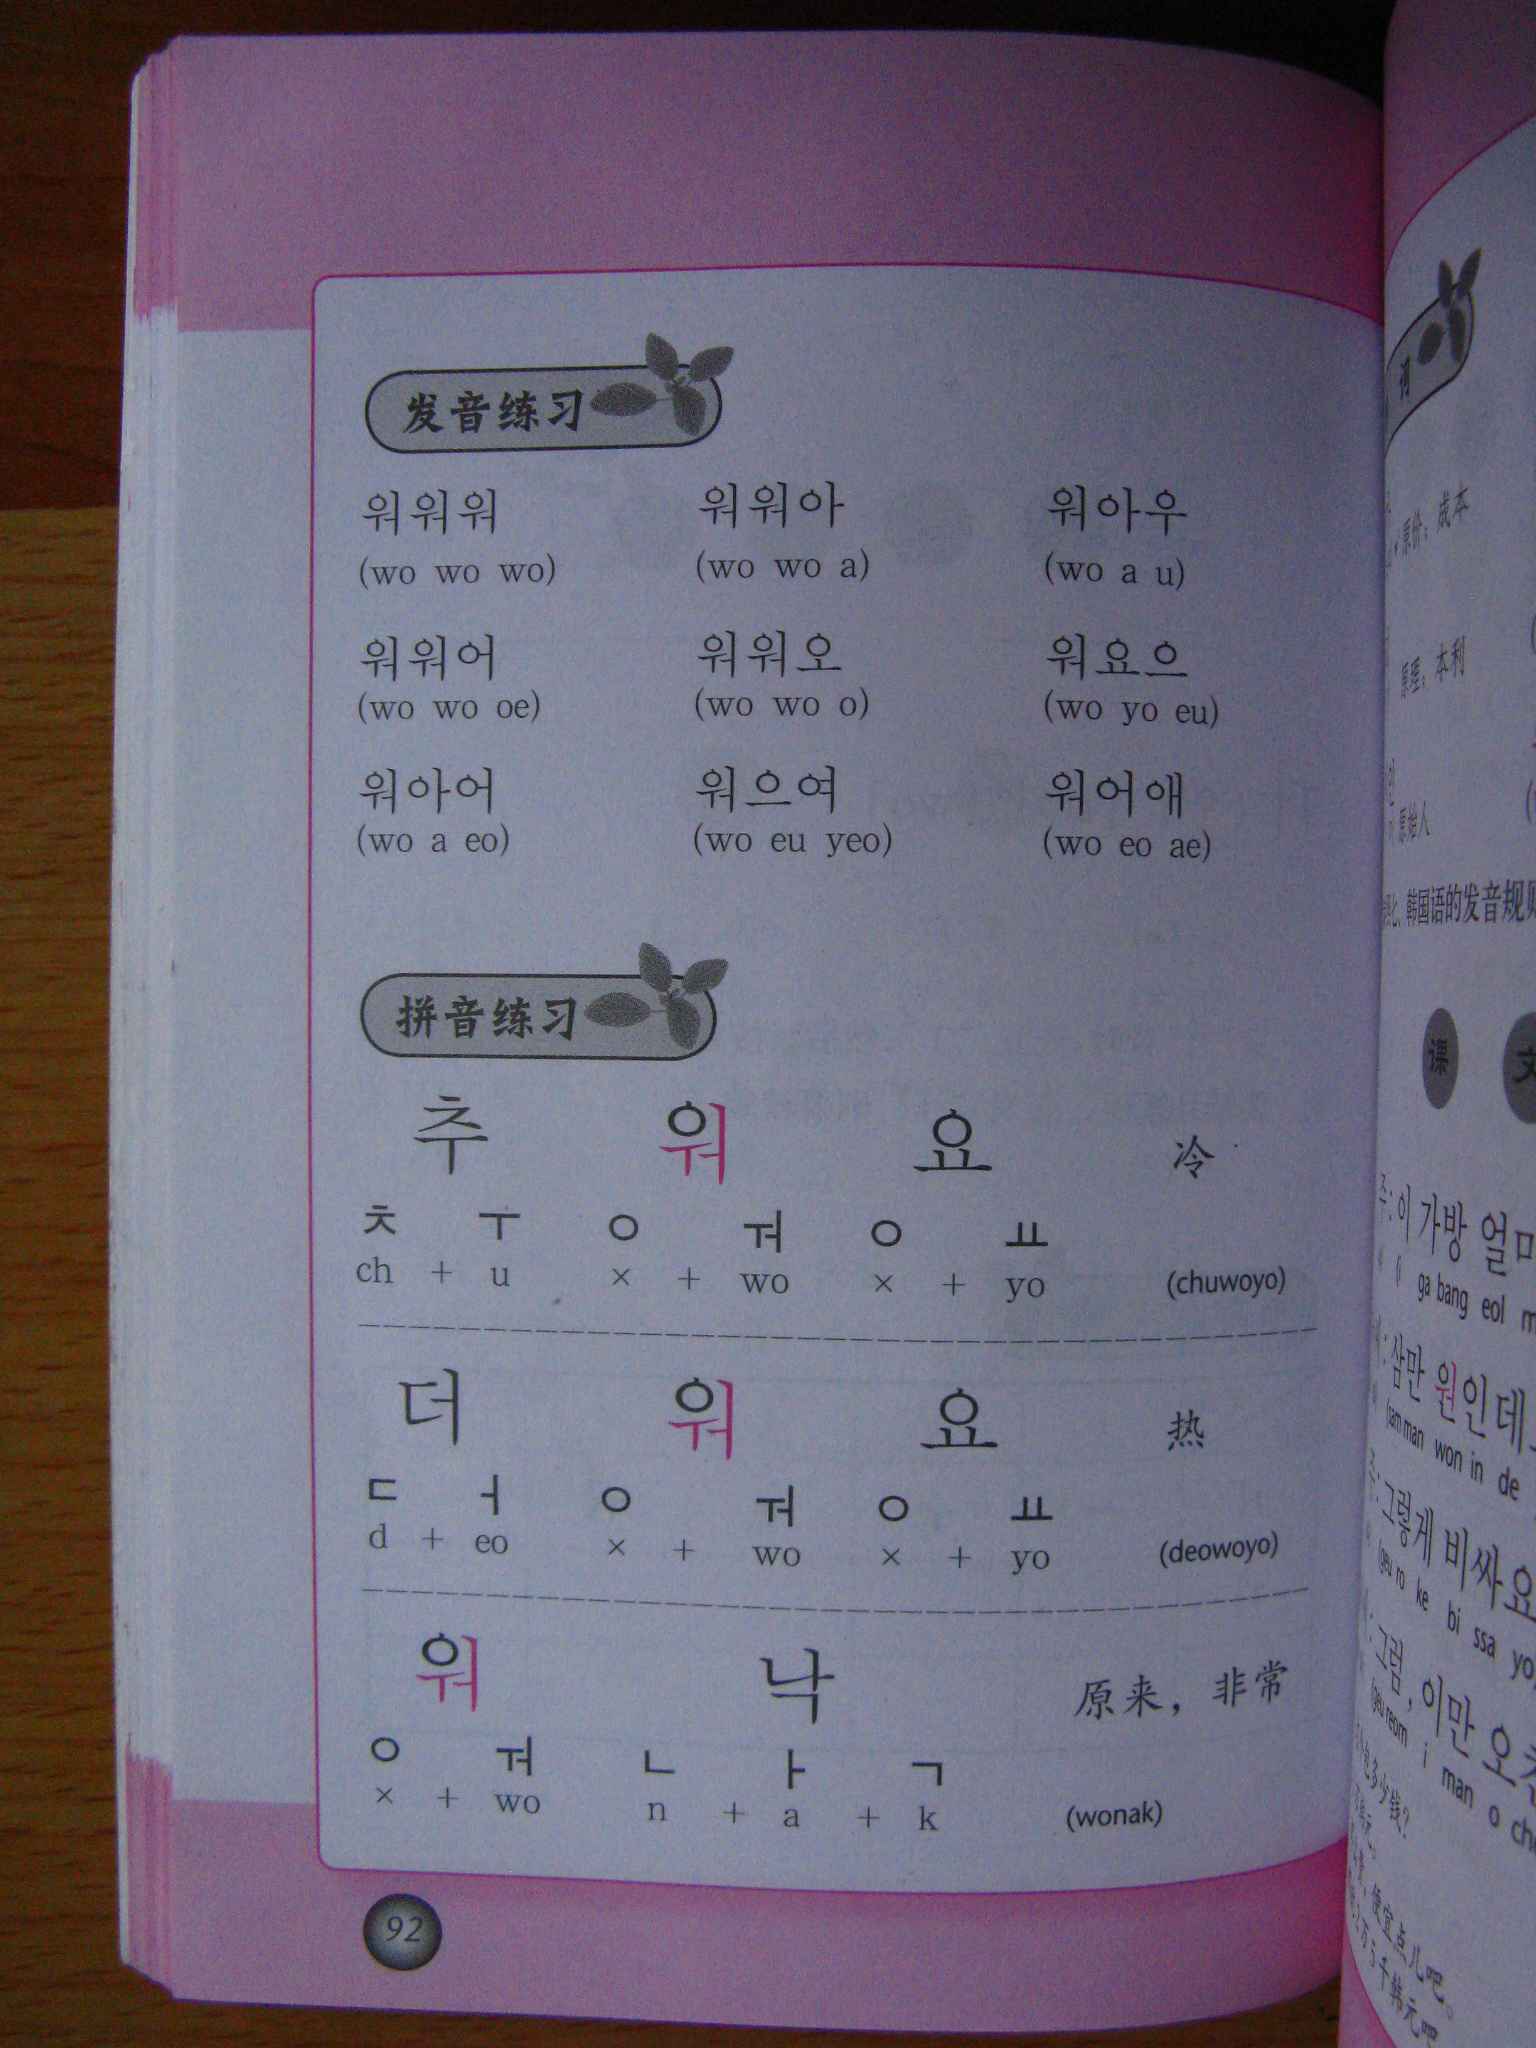 发音练习
워워워 워워아 워아우
(wo wo wo) (wo wo a) (wo a u)
워워어 워워오 워요으
(wo wo oe) (wo wo o) (wo yo eu)
워아어 워으여 워어애
(wo a eo) (wo eu yeo) (wo eo ae)
拼音练习
추 워 요 冷
ㅊ ㅜ ㅇ ㅝ ㅇ ㅛ
ch + u × + wo × + yo (chuwoyo)
더 워 요 热
ㄷ ㅓ ㅇ ㅝ ㅇ ㅛ
d + eo × + wo × + yo (deowoyo)
워 낙 原来，非常
ㅇ ㅝ ㄴ ㅏ ㄱ
× + wo n + a + k (wonak)
92
词
原价，成本
原理，本利
原始人
韩国语的发音规则
课 文
이 가방 얼마
ga bang eol m
삼만 원인데
(sam man won in de
그렇게 비싸요
(geu ro ke bi ssa yo
그럼, 이만 오천
(geu reom i man o che
多少钱?
便宜点儿吧。
千韩元吧